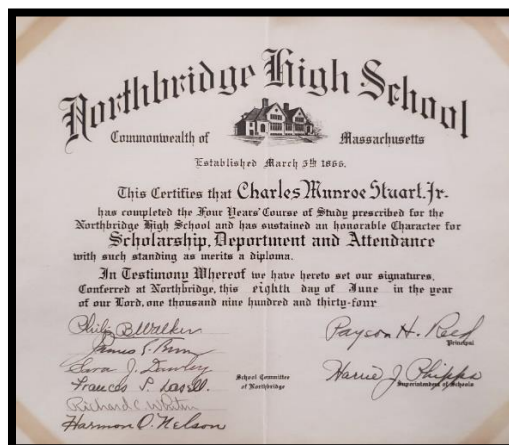 Northbridge High School
Commonwealth of Massachusetts
Established March 5th 1866.
This Certifies that Charles Munroe Stuart, Jr.
has completed the Four Years' Course of Study prescribed for the
Northbridge High School and has sustained an honorable Character for
Scholarship, Deportment and Attendance
with such standing as merits a diploma.
In Testimony Whereof we have hereto set our signatures.
Conferred at Northbridge, this eighth day of June in the year
of our Lord, one thousand nine hundred and thirty-four
Philip B. Walker
James S.
J.
Frances P. Lasell.
Richard C. Whitin
Harmon O. Nelson
School Committee
of Northbridge
Payson H. Reed
Principal
Harrie J. Phipps
Superintendent of Schools